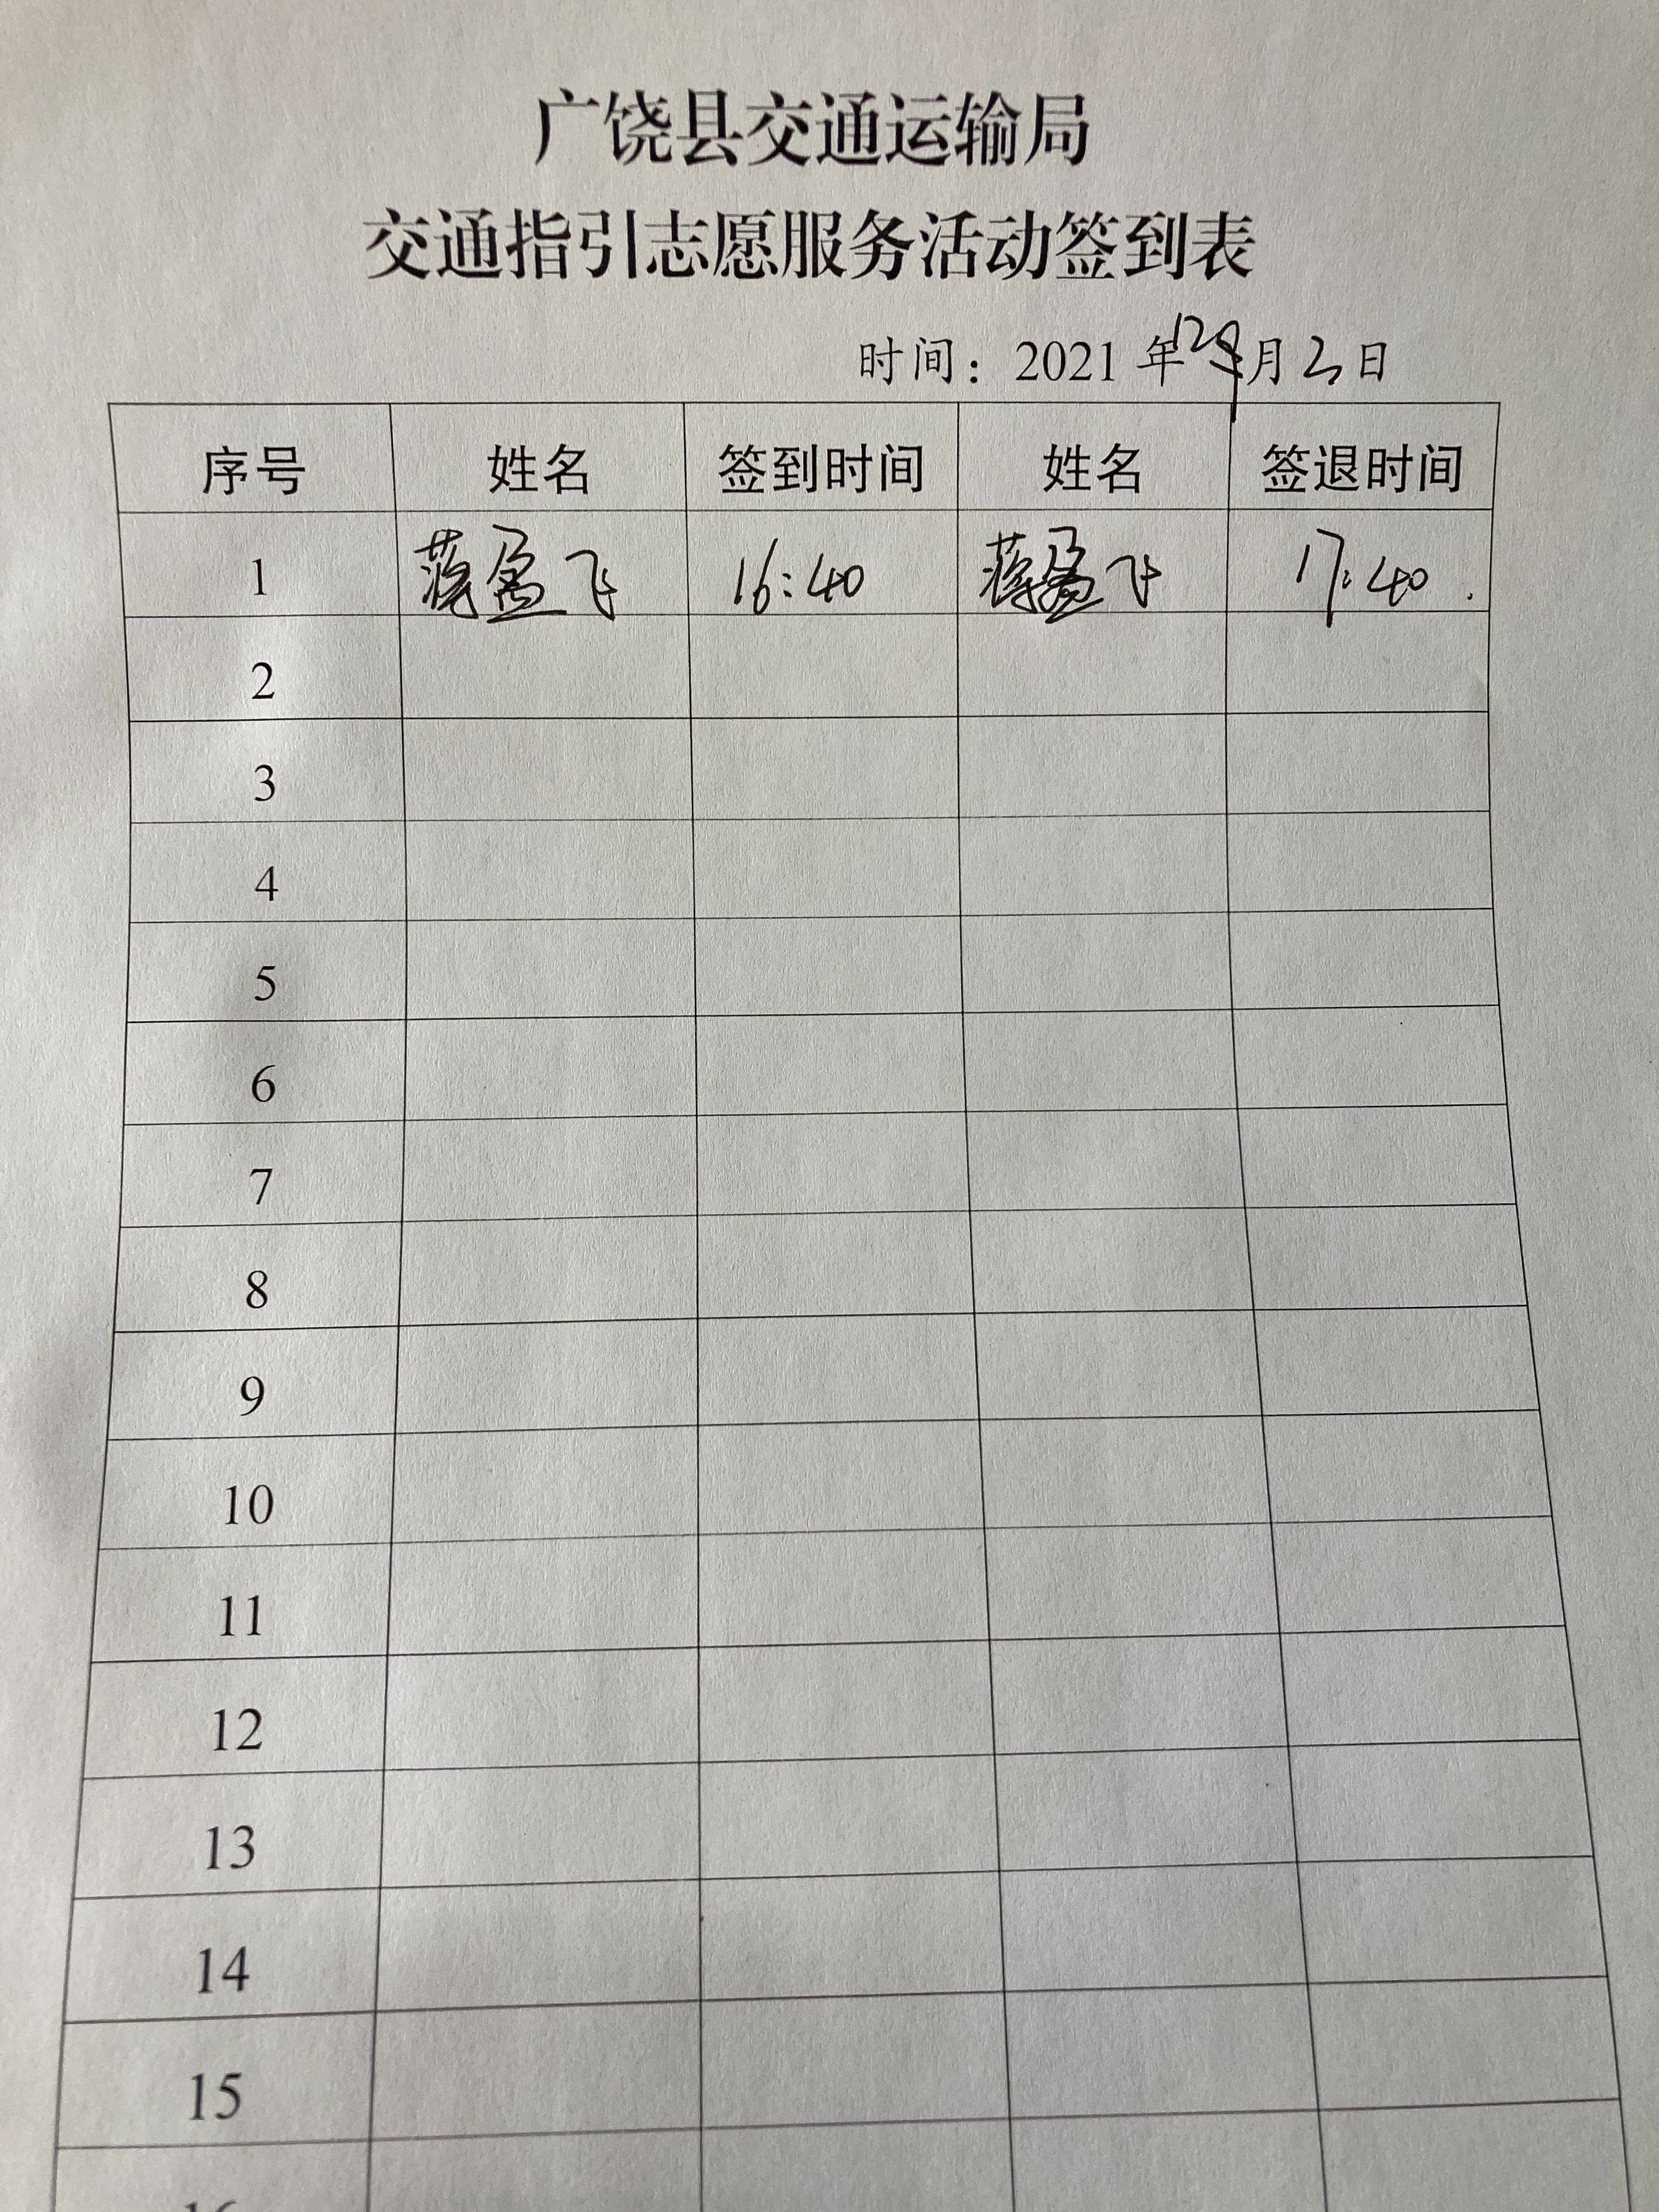 广饶县交通运输局
交通指引志愿服务活动签到表
时间：2021 年12月2日
序号 姓名 签到时间 姓名 签退时间
1 蒋盈飞 16:40 蒋盈飞 17:40
2
3
4
5
6
7
8
9
10
11
12
13
14
15
16